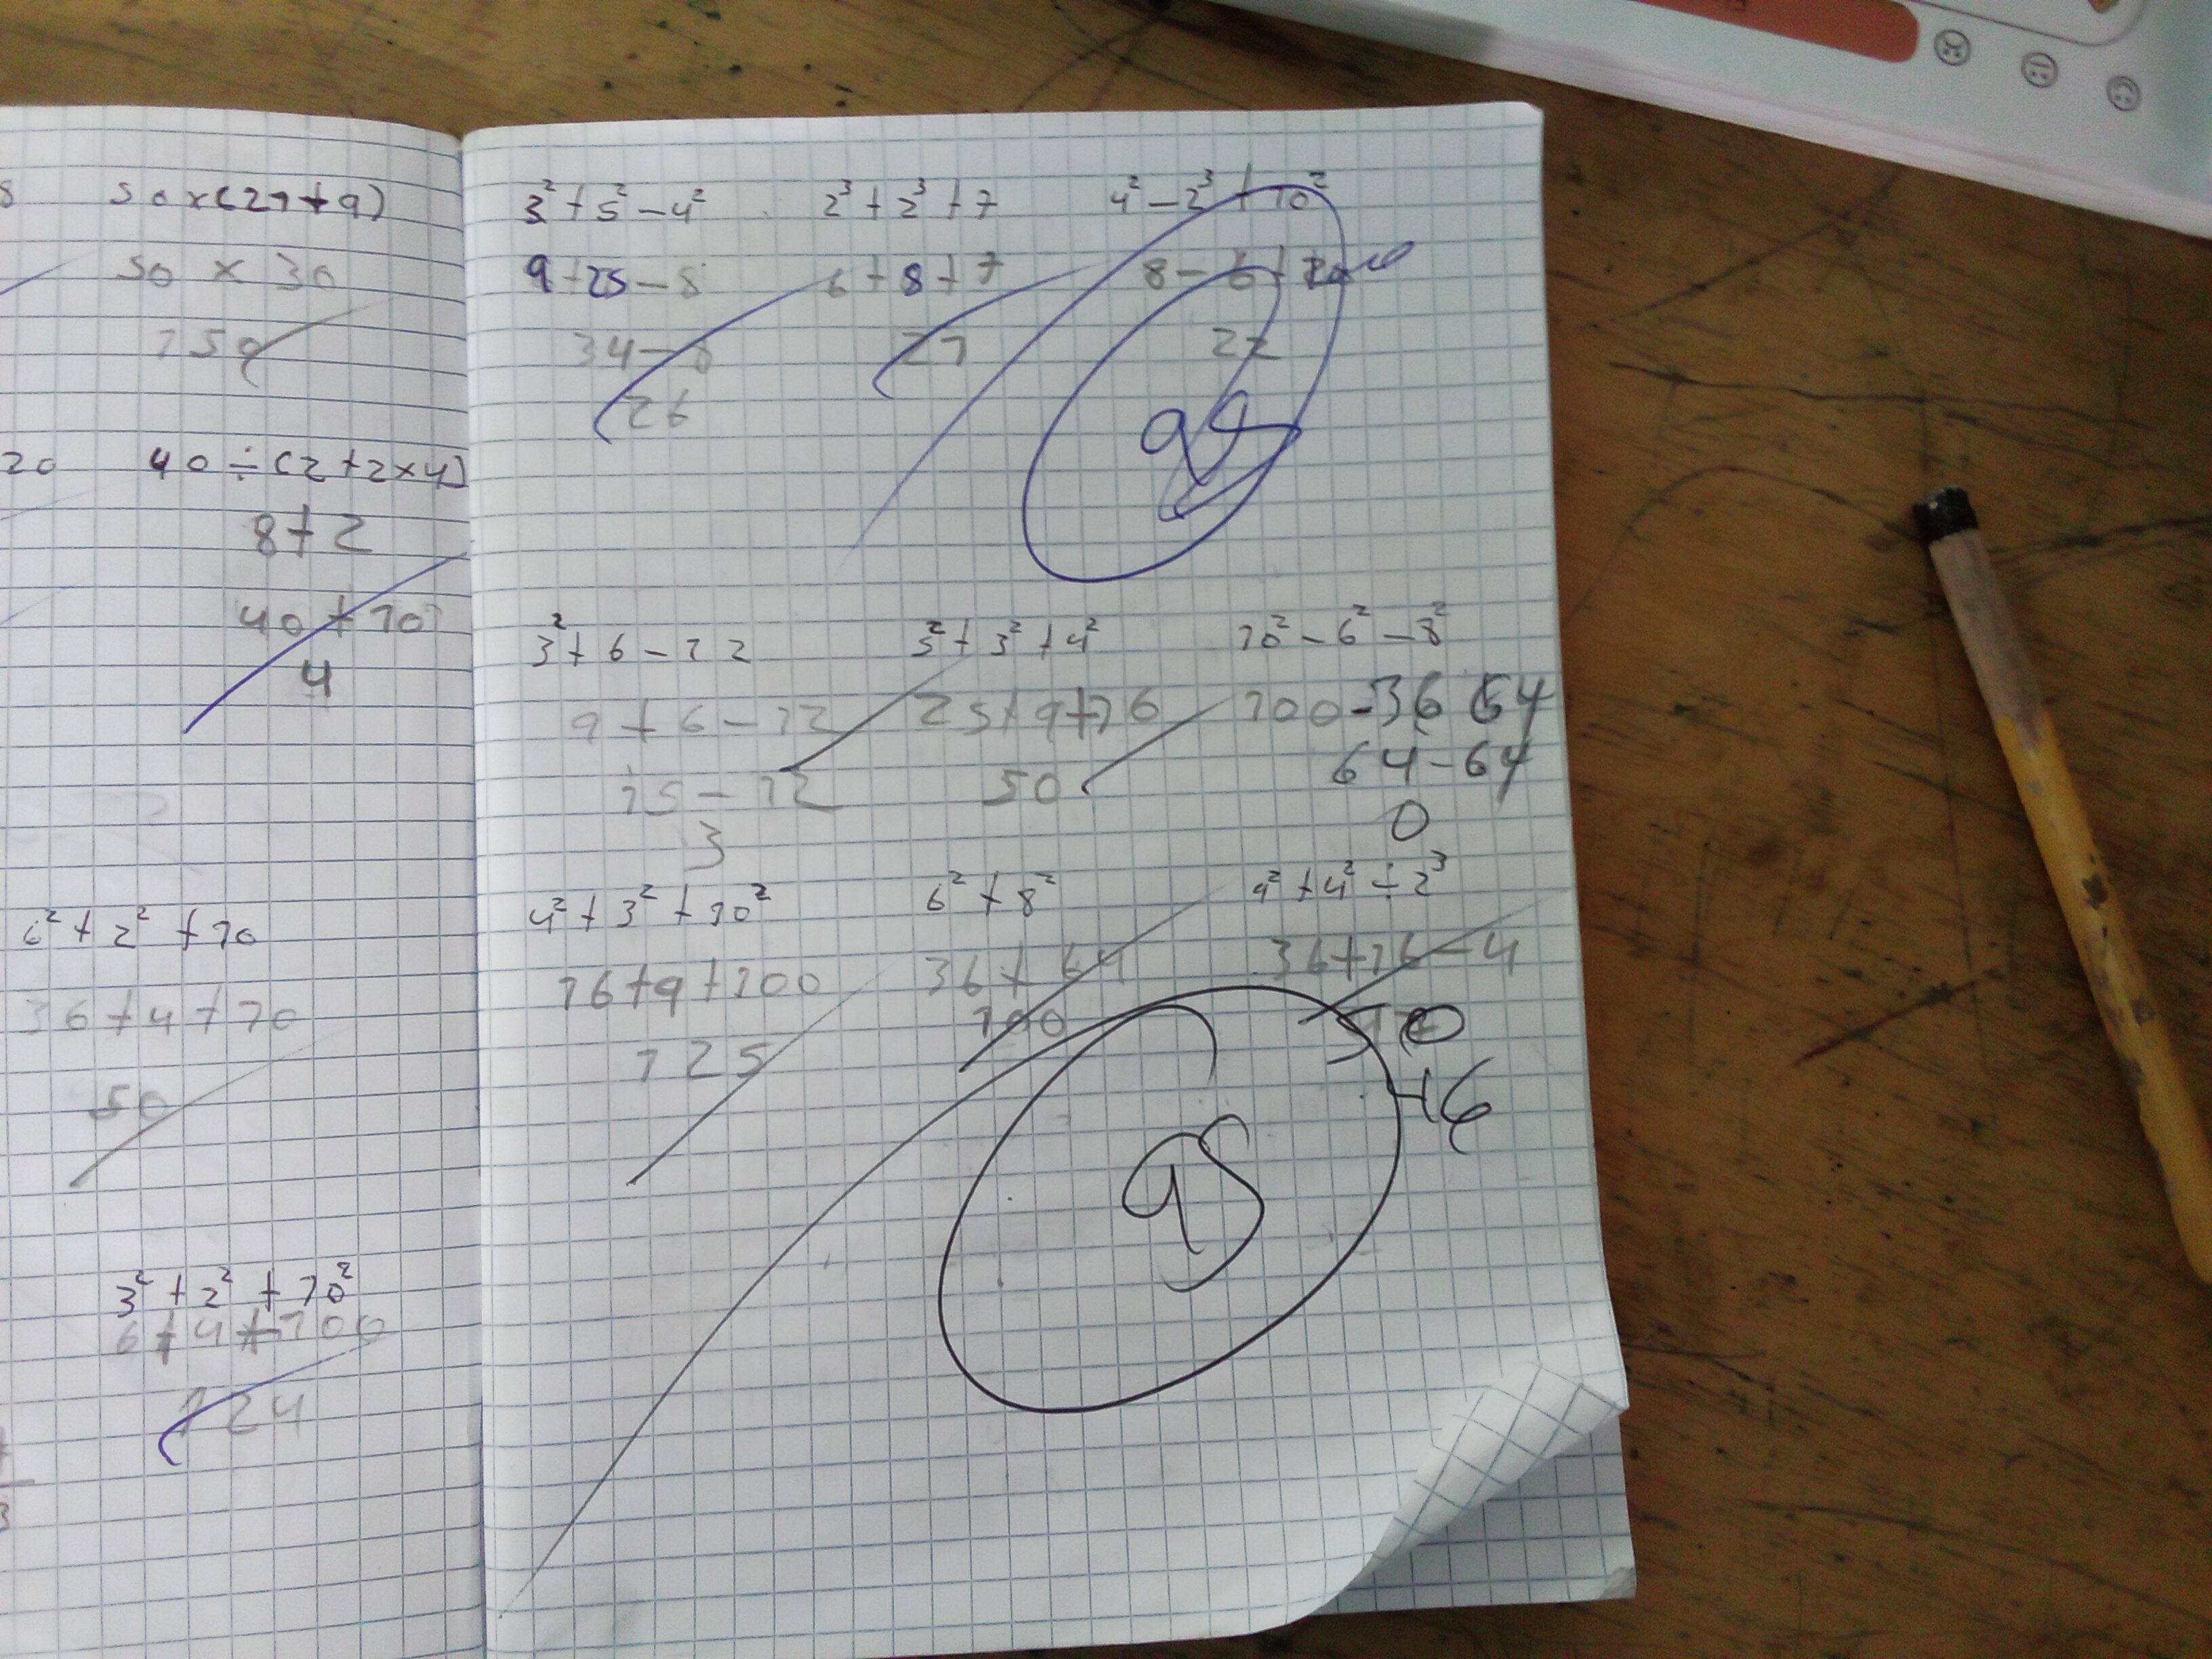 50 x (21 + 9)
50 x 30
150
20
40 ÷ (2 + 2 x 4)
8 + 2
40 + 10
4
6² + 2² + 10
36 + 4 + 10
50
3² + 2² + 10²
6 + 4 + 100
124
3² + 5² - 4²
9 + 25 - 8
34 - 8
26
2³ + 2³ + 7
6 + 8 + 7
21
4² - 2³ + 10²
22
95
3² + 6 - 12
9 + 6 - 12
15 - 12
3
5² + 3² + 4²
25 + 9 + 16
50
10² - 6² - 8²
100 - 36 64
64 - 64
0
4² + 3² + 10²
16 + 9 + 100
125
6² + 8²
36 + 64
100
36 + 16 - 4
95